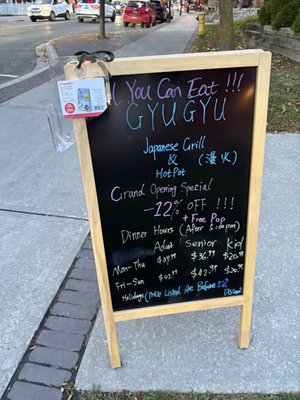 ll You Can Eat !!!
GYUGYU
Japanese Grill
& (漫火)
HotPot
Grand Opening Special
-12% OFF !!!
+ Free Pop
Dinner Hours (After 5:00pm)
Adult Senior Kid
Mon-Thu $36.99 $20.99
Fri-Sun $42.99 $20.99
Holidays (Price Listed Are Before 12%)